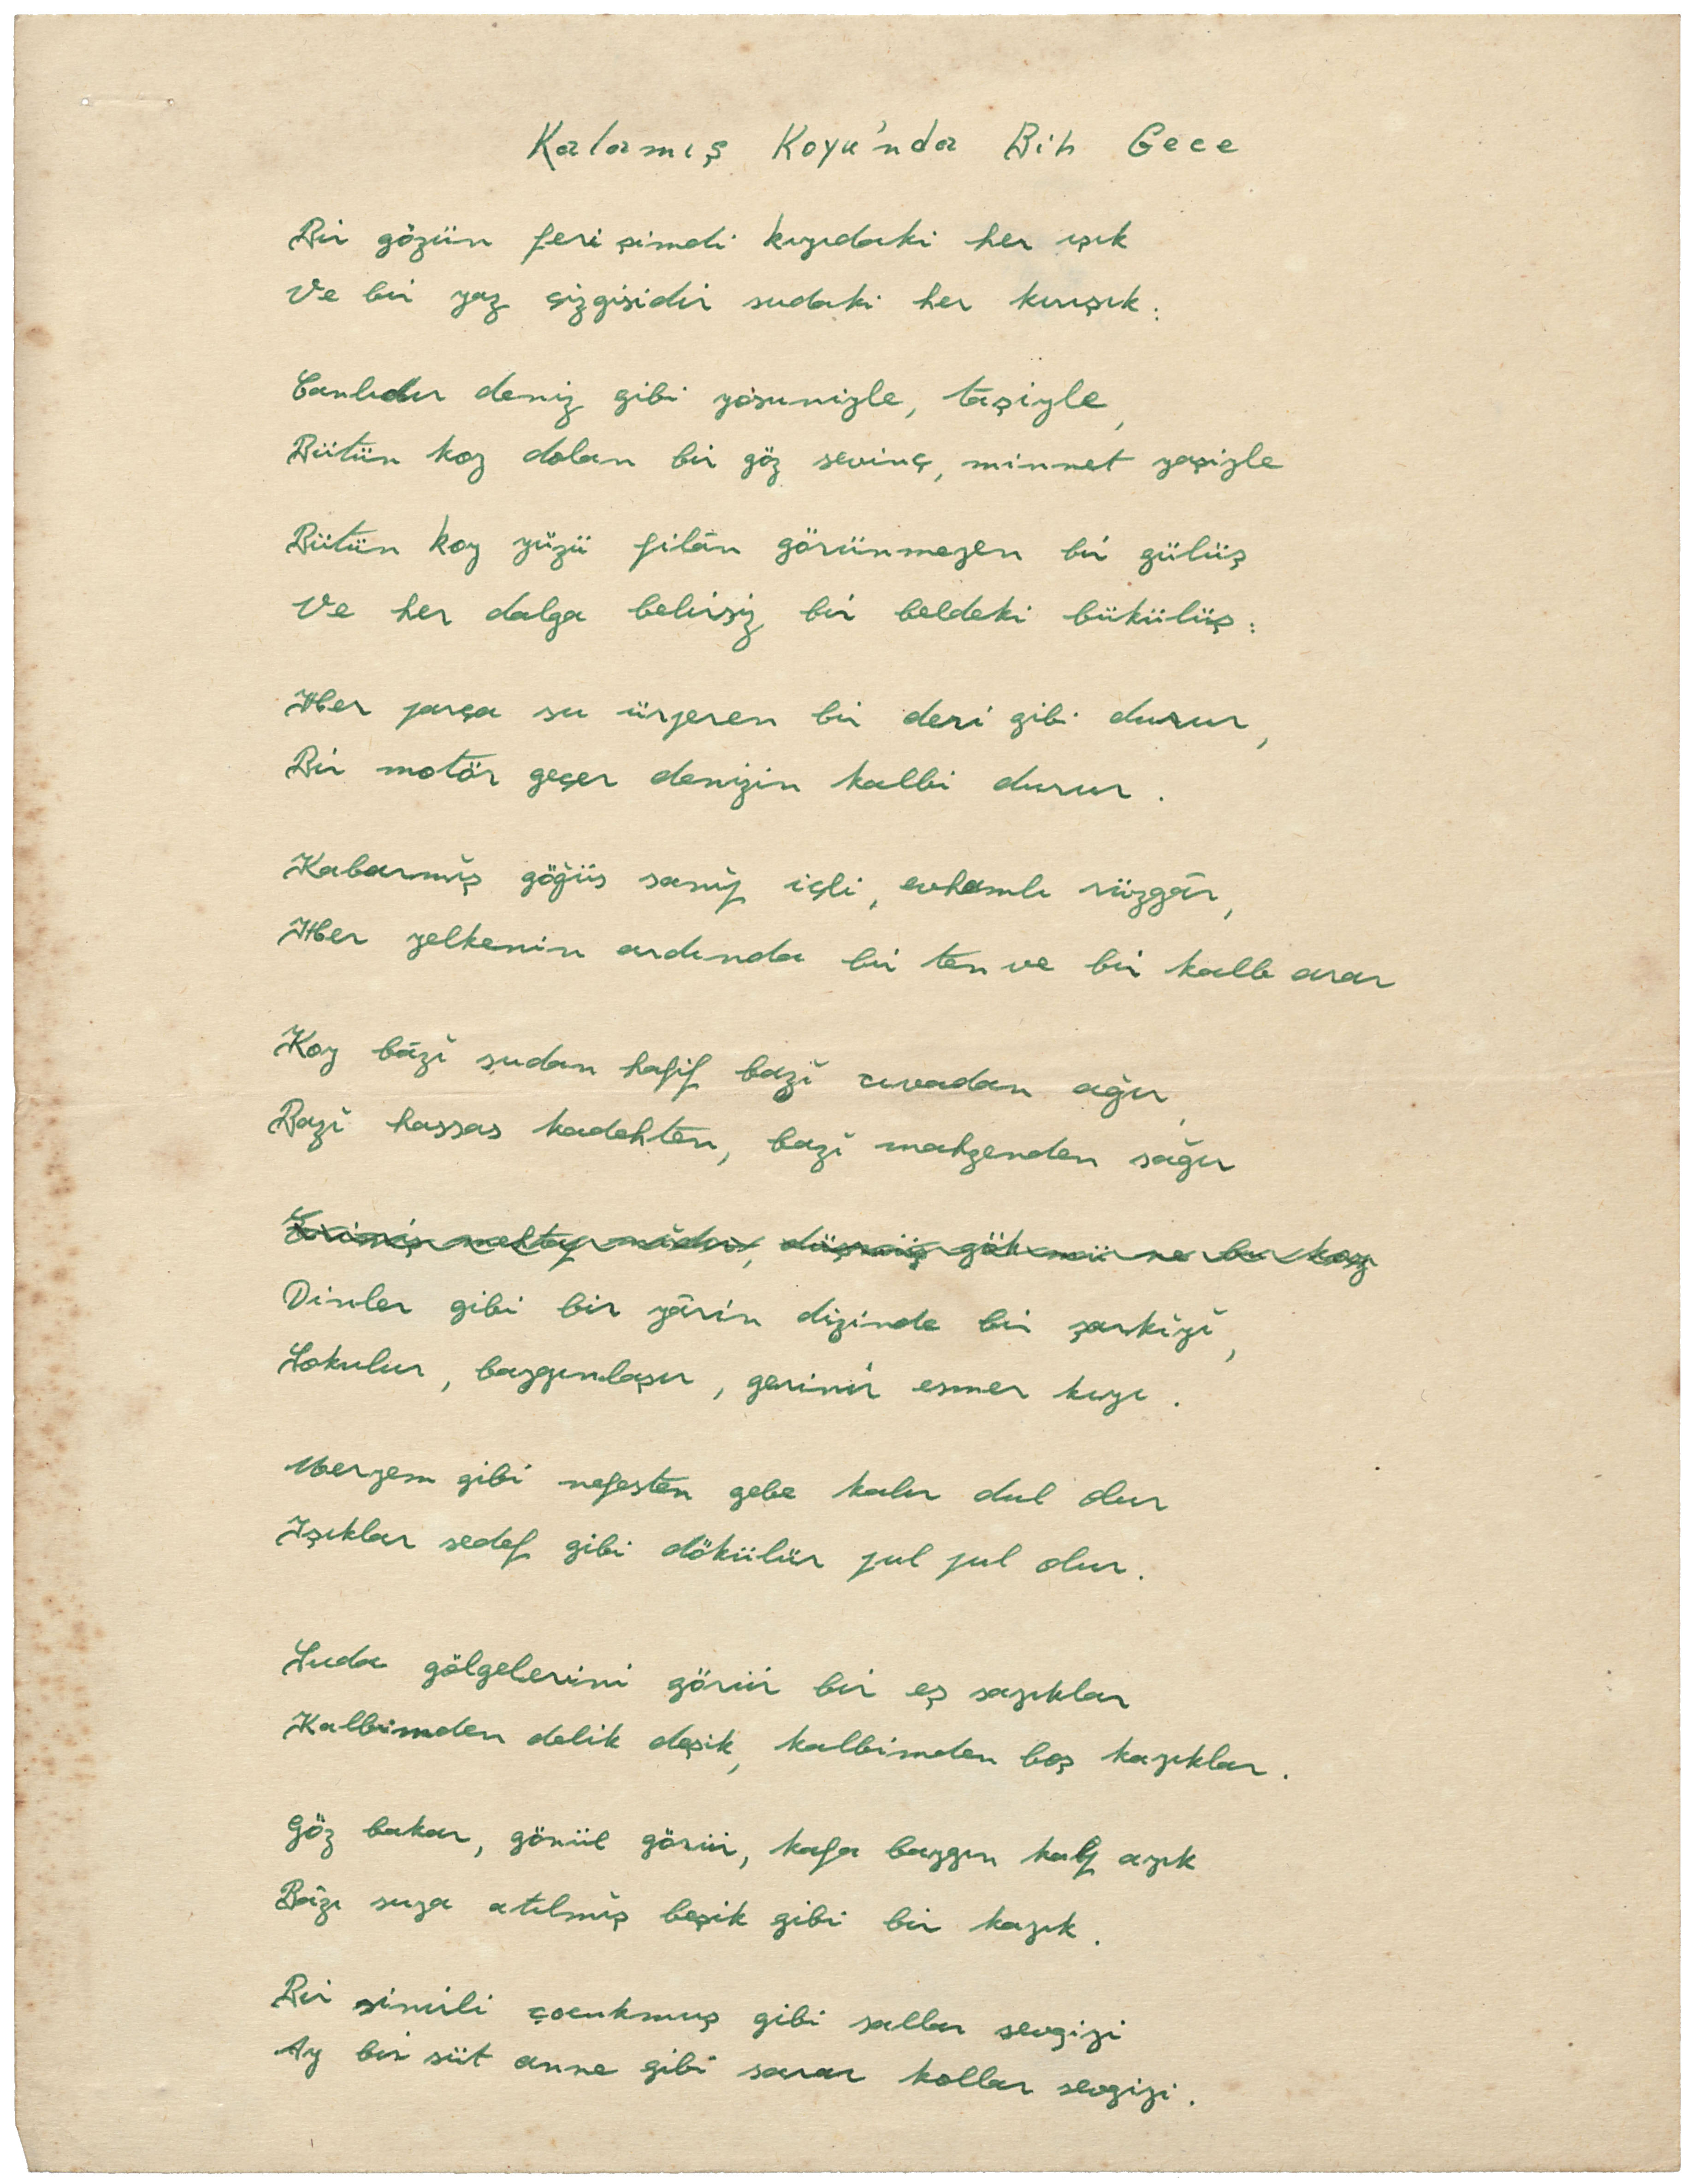 Kalamış Koyu'nda Bir Gece
Bir gözün feri şimdi kıyıdaki her ışık
Ve bir yaz çizgisidir sudaki her kırışık:
Canlıdır deniz gibi yosuniyle, taşiyle,
Bütün koy dolan bir göz sevinç, minnet yaşiyle
Bütün koy yüzü filân görünmeyen bir gülüş
Ve her dalga belirsiz bir beldeki bükülüş:
Her parça su ürperen bir deri gibi durur,
Bir motör geçer denizin kalbi durur.
Kabarmış göğüs sanıp içli, evhamlı rüzgâr,
Her yelkenin ardında bir ten ve bir kalb arar
Koy bâzı sudan hafif bazı cıvadan ağır,
Bazı hassas kadehten, bazı mahzenden sağır
Erimiş mehtap mıdır, düşmüş gök mü ne bu koy
Dinler gibi bir yârin dizinde bir şarkıyı,
Sokulur, baygınlaşır, gerinir esmer kıyı.
Meryem gibi nefesten gebe kalır dul olur
Işıklar sedef gibi dökülür pul pul olur.
Suda gölgelerini görür bir eş sayıklar
Kalbimden delik deşik, kalbimden boş kayıklar.
Göz bakar, gönül görür, kafa baygın kalp ayık
Bâzı suya atılmış beşik gibi bir kayık.
Bir sinirli çocukmuş gibi sallar sevgiyi
Ay bir süt anne gibi sarar kollar sevgiyi.